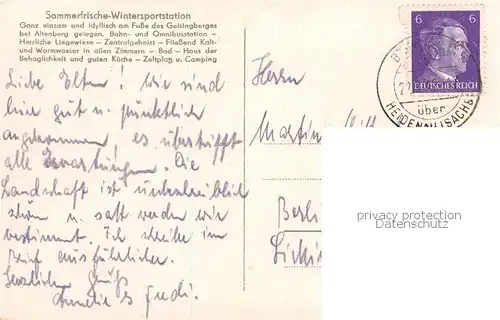 Sommerfrische-Wintersportstation
Ganz einsam und idyllisch am Fuße des Geisingberges
bei Altenberg gelegen. Bahn- und Omnibusstation –
Herrliche Liegewiese – Zentralgeheizt – Fließend Kalt-
und Warmwasser in allen Zimmern – Bad – Haus der
Behaglichkeit und guten Küche – Zeltplatz u. Camping
Liebe Eltern! Wir sind
hier gut u. pünktlich
angekommen! es übertrifft
alle Erwartungen. Die
Landschaft ist unbeschreiblich
schön u. satt werden wir
bestimmt. Ich schreibe im
Brief ausführlicher.
Herzlichen Gruß
Fredi.
Herrn
Martin
Berli
6 6
DEUTSCHES REICH
über
HEIDENAU (SACHS
privacy protection
Datenschutz